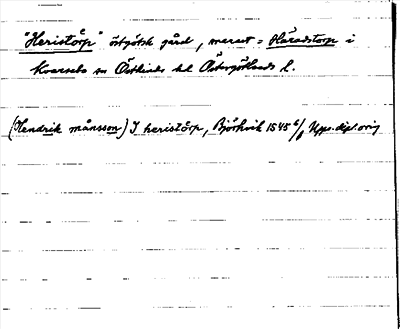 "Heristårp" östgötsk gård, = Häradstorp i
Kvarsebo sn Östkinds hd Östergötlands l.
(Hendrik månsson) I heristårp, Björkvik 1545 6/8 Upps. dipl. orig